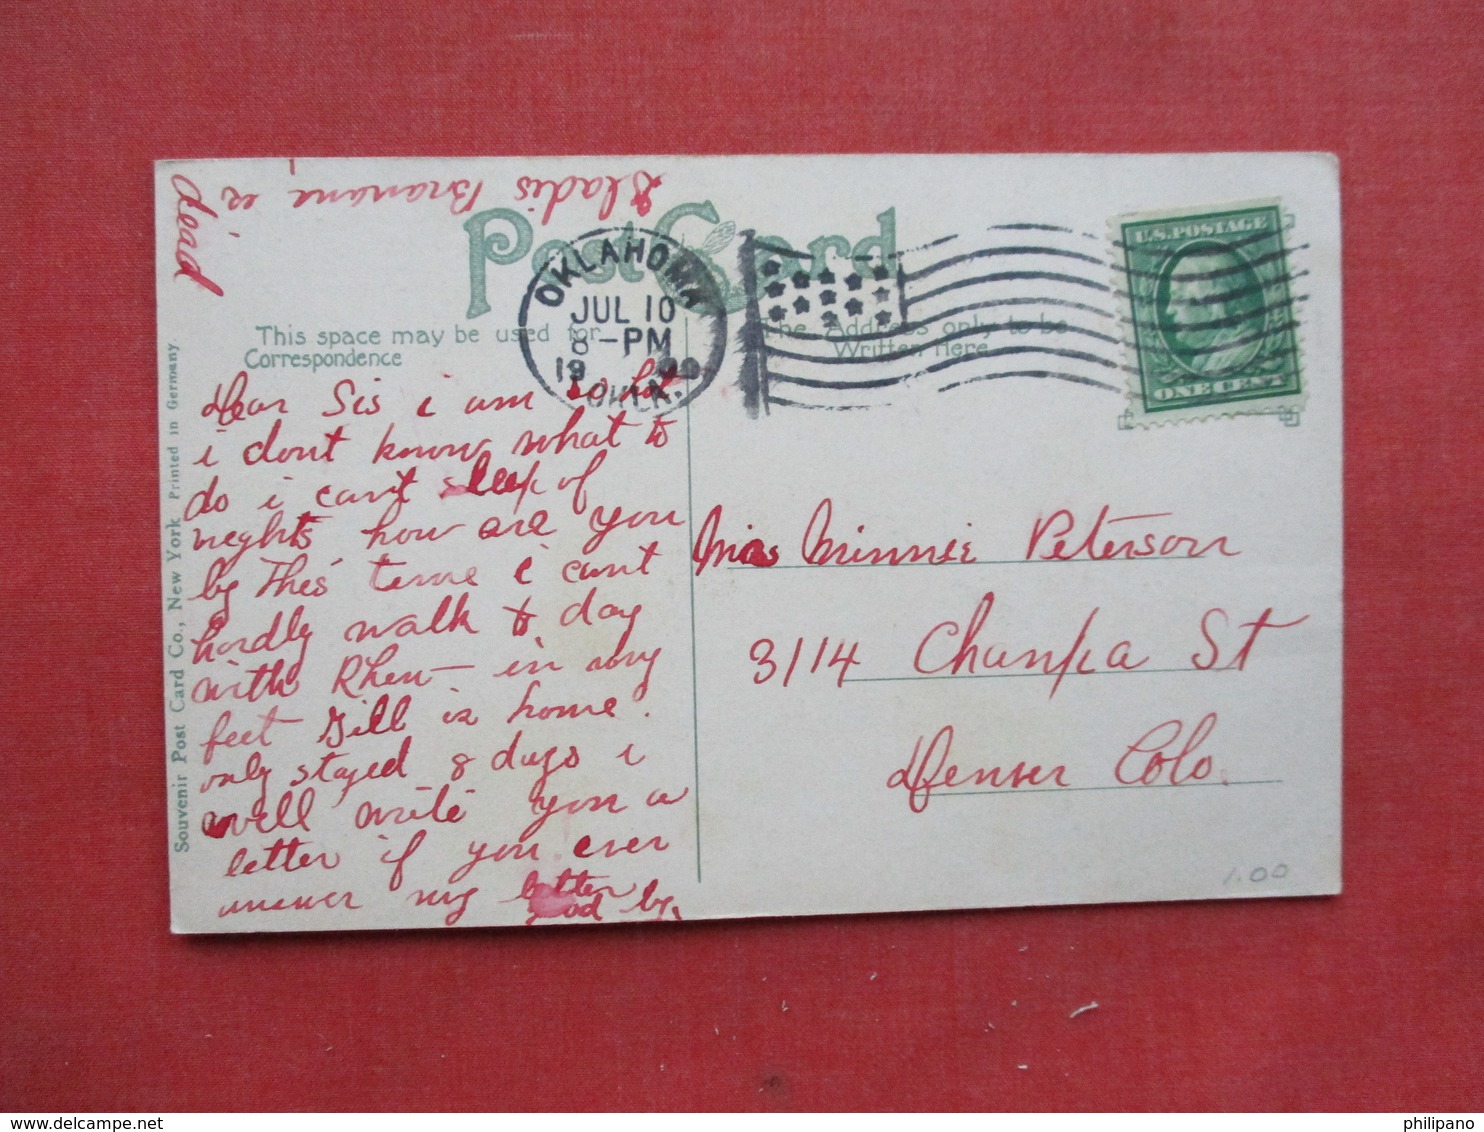 Gladis Bramane is
dead
Post Card
OKLAHOMA
JUL 10
8-PM
1909
OKLA.
U.S. POSTAGE
ONE CENT
This space may be used for
Correspondence
The Address only to be
Written Here
Dear Sis i am so hot
i dont know what to
do i cant sleep of
neghts how are you
by thes teme i cant
hardly walk to day
with Rhen— in my
feet Gill is home.
only stayed 8 days i
well write you a
letter if you ever
answer my letter
good by.
Mrs Minnie Peterson
3114 Champa St
Denver Colo.
Souvenir Post Card Co., New York. Printed in Germany.
1.00
philipano
delcampe.net